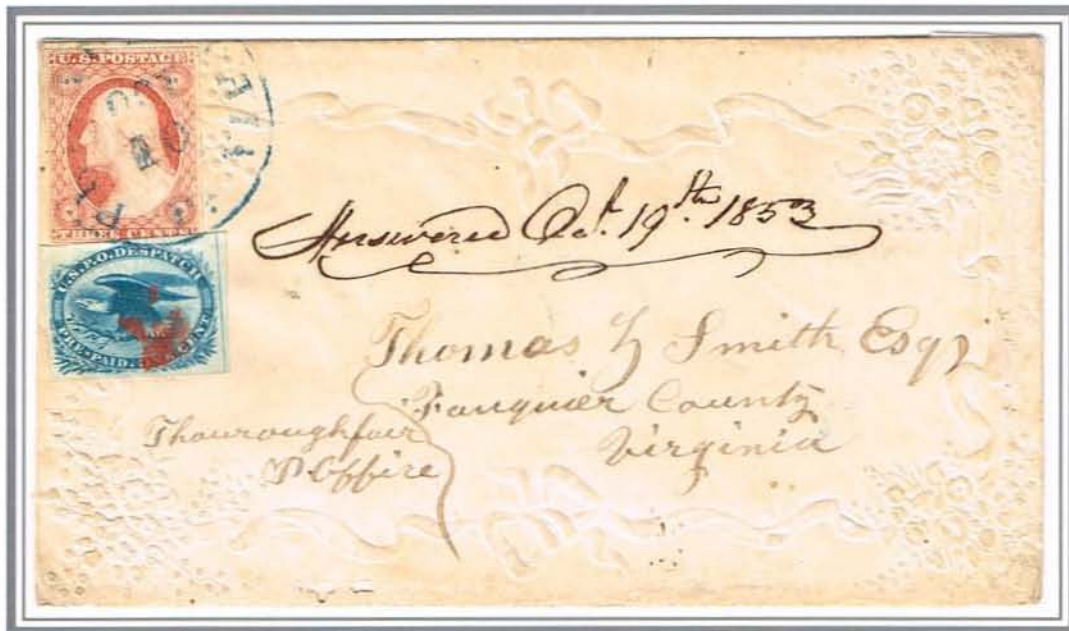 U.S. POSTAGE
THREE CENTS
U.S.P.O. DESPATCH
PRE-PAID. ONE CENT
Answered Oct. 19th. 1853
Thomas Smith Esqr
Fauquier County
Virginia
Thouroughfair
P. Offire